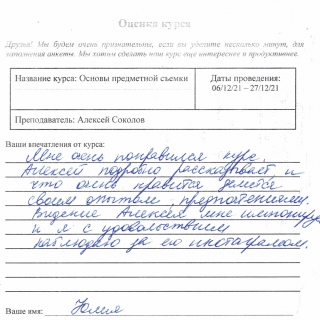 Оценка курса
Друзья! Мы будем очень признательны, если вы уделите несколько минут, для
заполнения анкеты. Мы хотим сделать наш курс еще интереснее и продуктивнее.
Название курса: Основы предметной съемки
Даты проведения:
06/12/21 – 27/12/21
Преподаватель: Алексей Соколов
Ваши впечатления от курса:
Мне очень понравился курс.
Алексей подробно рассказывает и
что очень нравится делится
своим опытом, предпочтениями.
Видение Алексея мне импонирует
и я с удовольствием
наблюдаю за его инстаграмом.
Ваше имя: Юлия